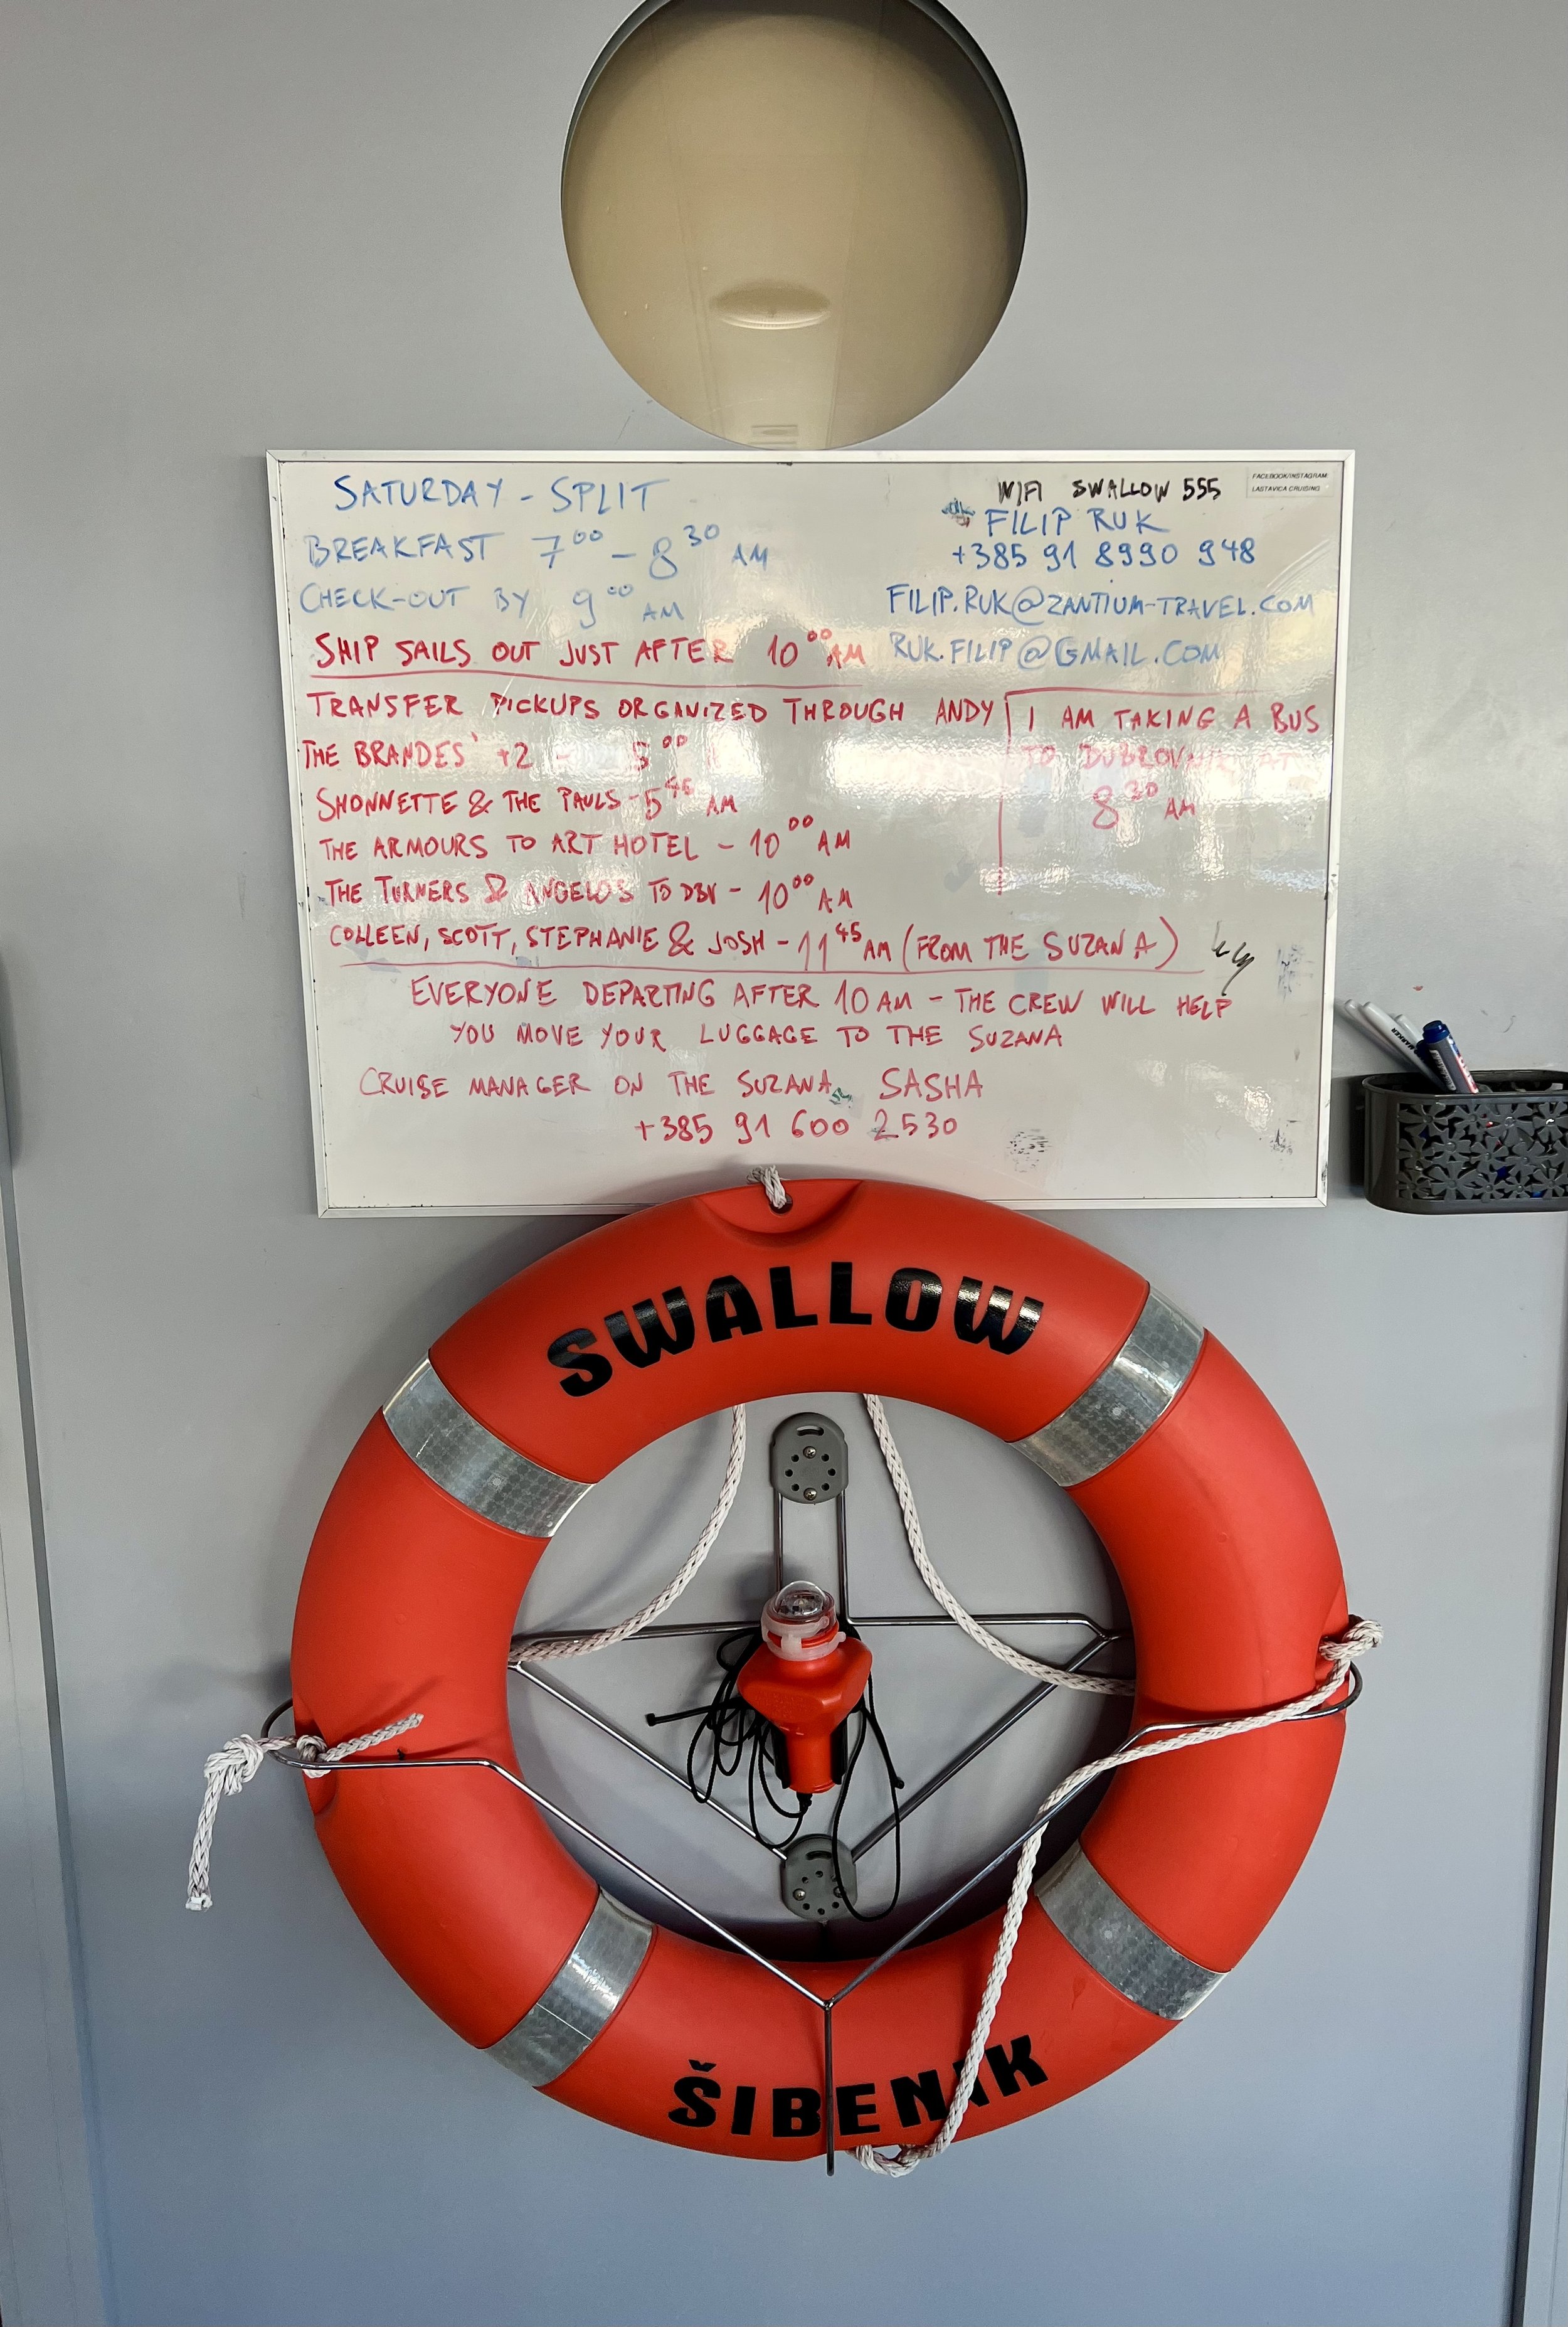 SATURDAY - SPLIT
BREAKFAST 7⁰⁰ - 8³⁰ AM
CHECK-OUT BY 9⁰⁰ AM
SHIP SAILS OUT JUST AFTER 10⁰⁰ AM
WIFI SWALLOW 555
FACEBOOK/INSTAGRAM:
LASTAVICA CRUISING
FILIP RUK
+385 91 8990 948
FILIP.RUK@ZANTIUM-TRAVEL.COM
RUK.FILIP@GMAIL.COM
TRANSFER PICKUPS ORGANIZED THROUGH ANDY
THE BRANDES' +2 - 5⁰⁰
SHONNETTE & THE PAULS - 5⁴⁵ AM
THE ARMOURS TO ART HOTEL - 10⁰⁰ AM
THE TURNERS & ANGELOS TO DBV - 10⁰⁰ AM
COLLEEN, SCOTT, STEPHANIE & JOSH - 11⁴⁵ AM (FROM THE SUZANA)
I AM TAKING A BUS
TO DUBROVNIK AT
8³⁰ AM
EVERYONE DEPARTING AFTER 10 AM - THE CREW WILL HELP
YOU MOVE YOUR LUGGAGE TO THE SUZANA
CRUISE MANAGER ON THE SUZANA SASHA
+385 91 600 2530
MARKER
SWALLOW
ŠIBENIK